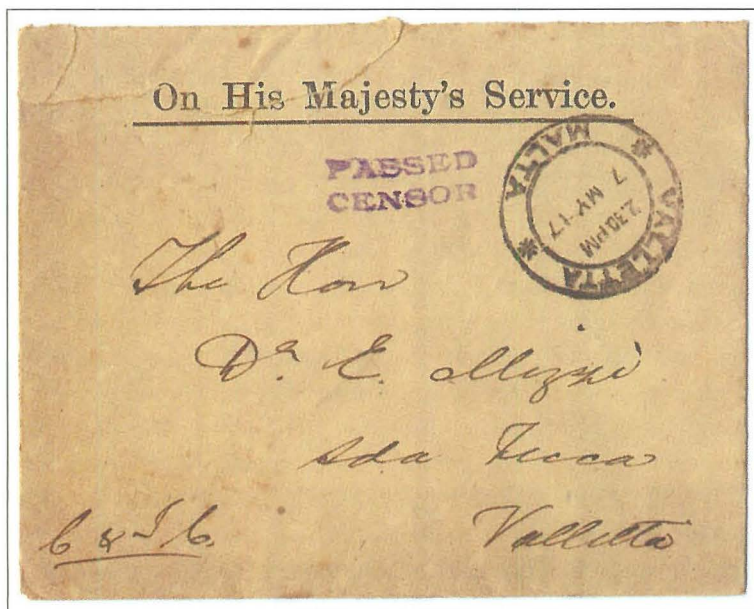 On His Majesty's Service.
PASSED
CENSOR
VALLETTA
MALTA
2.30 PM
7 MY 17
The Hon
Dr. E. Mizzi
Sda Zecca
Valletta